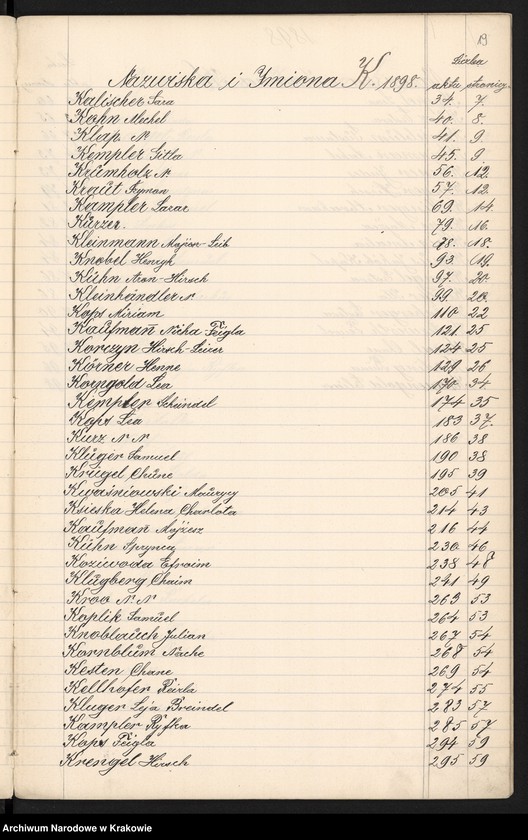 19
Liczba
Nazwiska i Imiona K. 1898. aktu stronicy.
Kalischer Sara 34. 7.
Kahn Mechel 40. 8.
Klap. N 41. 9
Kempler Gitla 45. 9.
Krumholz N 56. 12.
Kraut Szyman 57. 12.
Kampler Sarar 69 14.
Kurzer. 79. 16.
Kleinmann Majer-Leib 88. 18.
Knobel Henryk 93 19.
Kühn Aron-Hirsch 97. 20.
Kleinhändler N 99 20.
Kaps Miriam 110 22
Kaufman Nicha Feigla 121 25
Korczyn Hirsch-Leizer 124 25
Körner Henne 129 26
Korngold Lea 170 34
Kempler Scheindel 174 35
Kaps Lea 183 37.
Kurz N N 186 38
Kluger Samuel 190 38
Krugel Chune 195 39
Kwaśniowski Maurycy 205 41
Ksieska Helena Charlota 214 43
Kaufman Mojżesz 216 44
Kühn Szprynca 230 46
Koziwoda Efroim 238 48
Klugberg Chaim 241 49
Kroo N N 263 53
Koplik Samuel 264 53
Knoblauch Julian 267 54
Kornblum Nache 268 54
Kesten Chane 269 54
Kellhofer Reizla 274 55
Kluger Leja Breindel 283 57
Kampler Ryfka 285 57
Kaps Feigla 294 59
Krengel Hirsch 295 59
Archiwum Narodowe w Krakowie